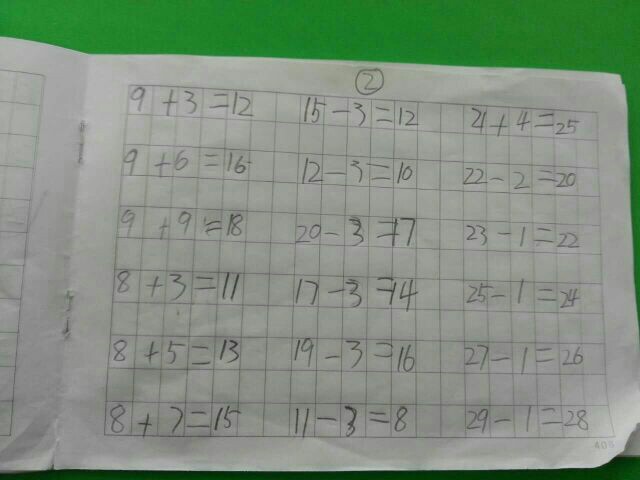 ②
9 + 3 = 12 15 - 3 = 12 21 + 4 = 25
9 + 6 = 16 12 - 3 = 10 22 - 2 = 20
9 + 9 = 18 20 - 3 = 17 23 - 1 = 22
8 + 3 = 11 17 - 3 = 14 25 - 1 = 24
8 + 5 = 13 19 - 3 = 16 27 - 1 = 26
8 + 7 = 15 11 - 3 = 8 29 - 1 = 28